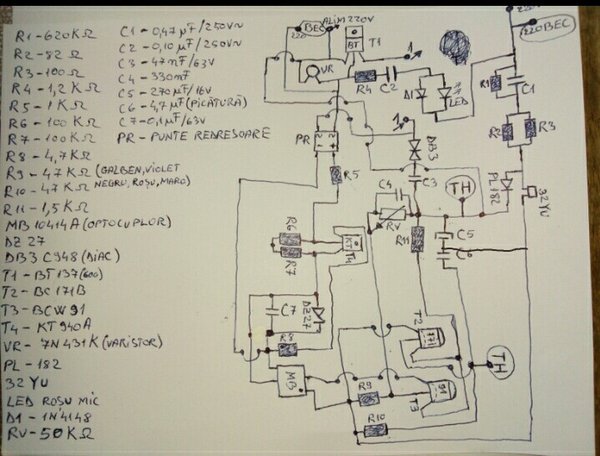 R1-620KΩ
R2-82Ω
R3-100Ω
R4-1,2KΩ
R5-1KΩ
R6-100KΩ
R7-100KΩ
R8-4,7KΩ
R9-47KΩ (GALBEN, VIOLET
R10-47KΩ NEGRO, ROȘU, MARO)
R11-1,5KΩ
MB 10414A (OPTOCUPLOR)
DZ 27
DB3 C948 (DIAC)
T1-BT137(600)
T2-BC171B
T3-BCW91
T4-KT940A
VR-7N431K (VARISTOR)
PL-182
32YU
LED ROȘU MIC
D1-1N4148
RV-50KΩ
C1-0,47µF/250V~
C2-0,10µF/250V~
C3-47nF/63V
C4-330nF
C5-270µF/16V
C6-4,7µF (PICĂTURĂ)
C7-0,1µF/63V
PR-PUNTE REDRESOARE
BEC
220
ALIM 220V
BT
T1
VR
R4
C2
1
D1
LED
220 BEC
R1
C1
R2
R3
PR
1
DB3
R5
C4
C3
TH
PL182
32YU
RV
R11
C5
C6
R6
R7
KT
T4
C7
DZ27
R8
T2
171
TH
MB
R9
91
T3
R10